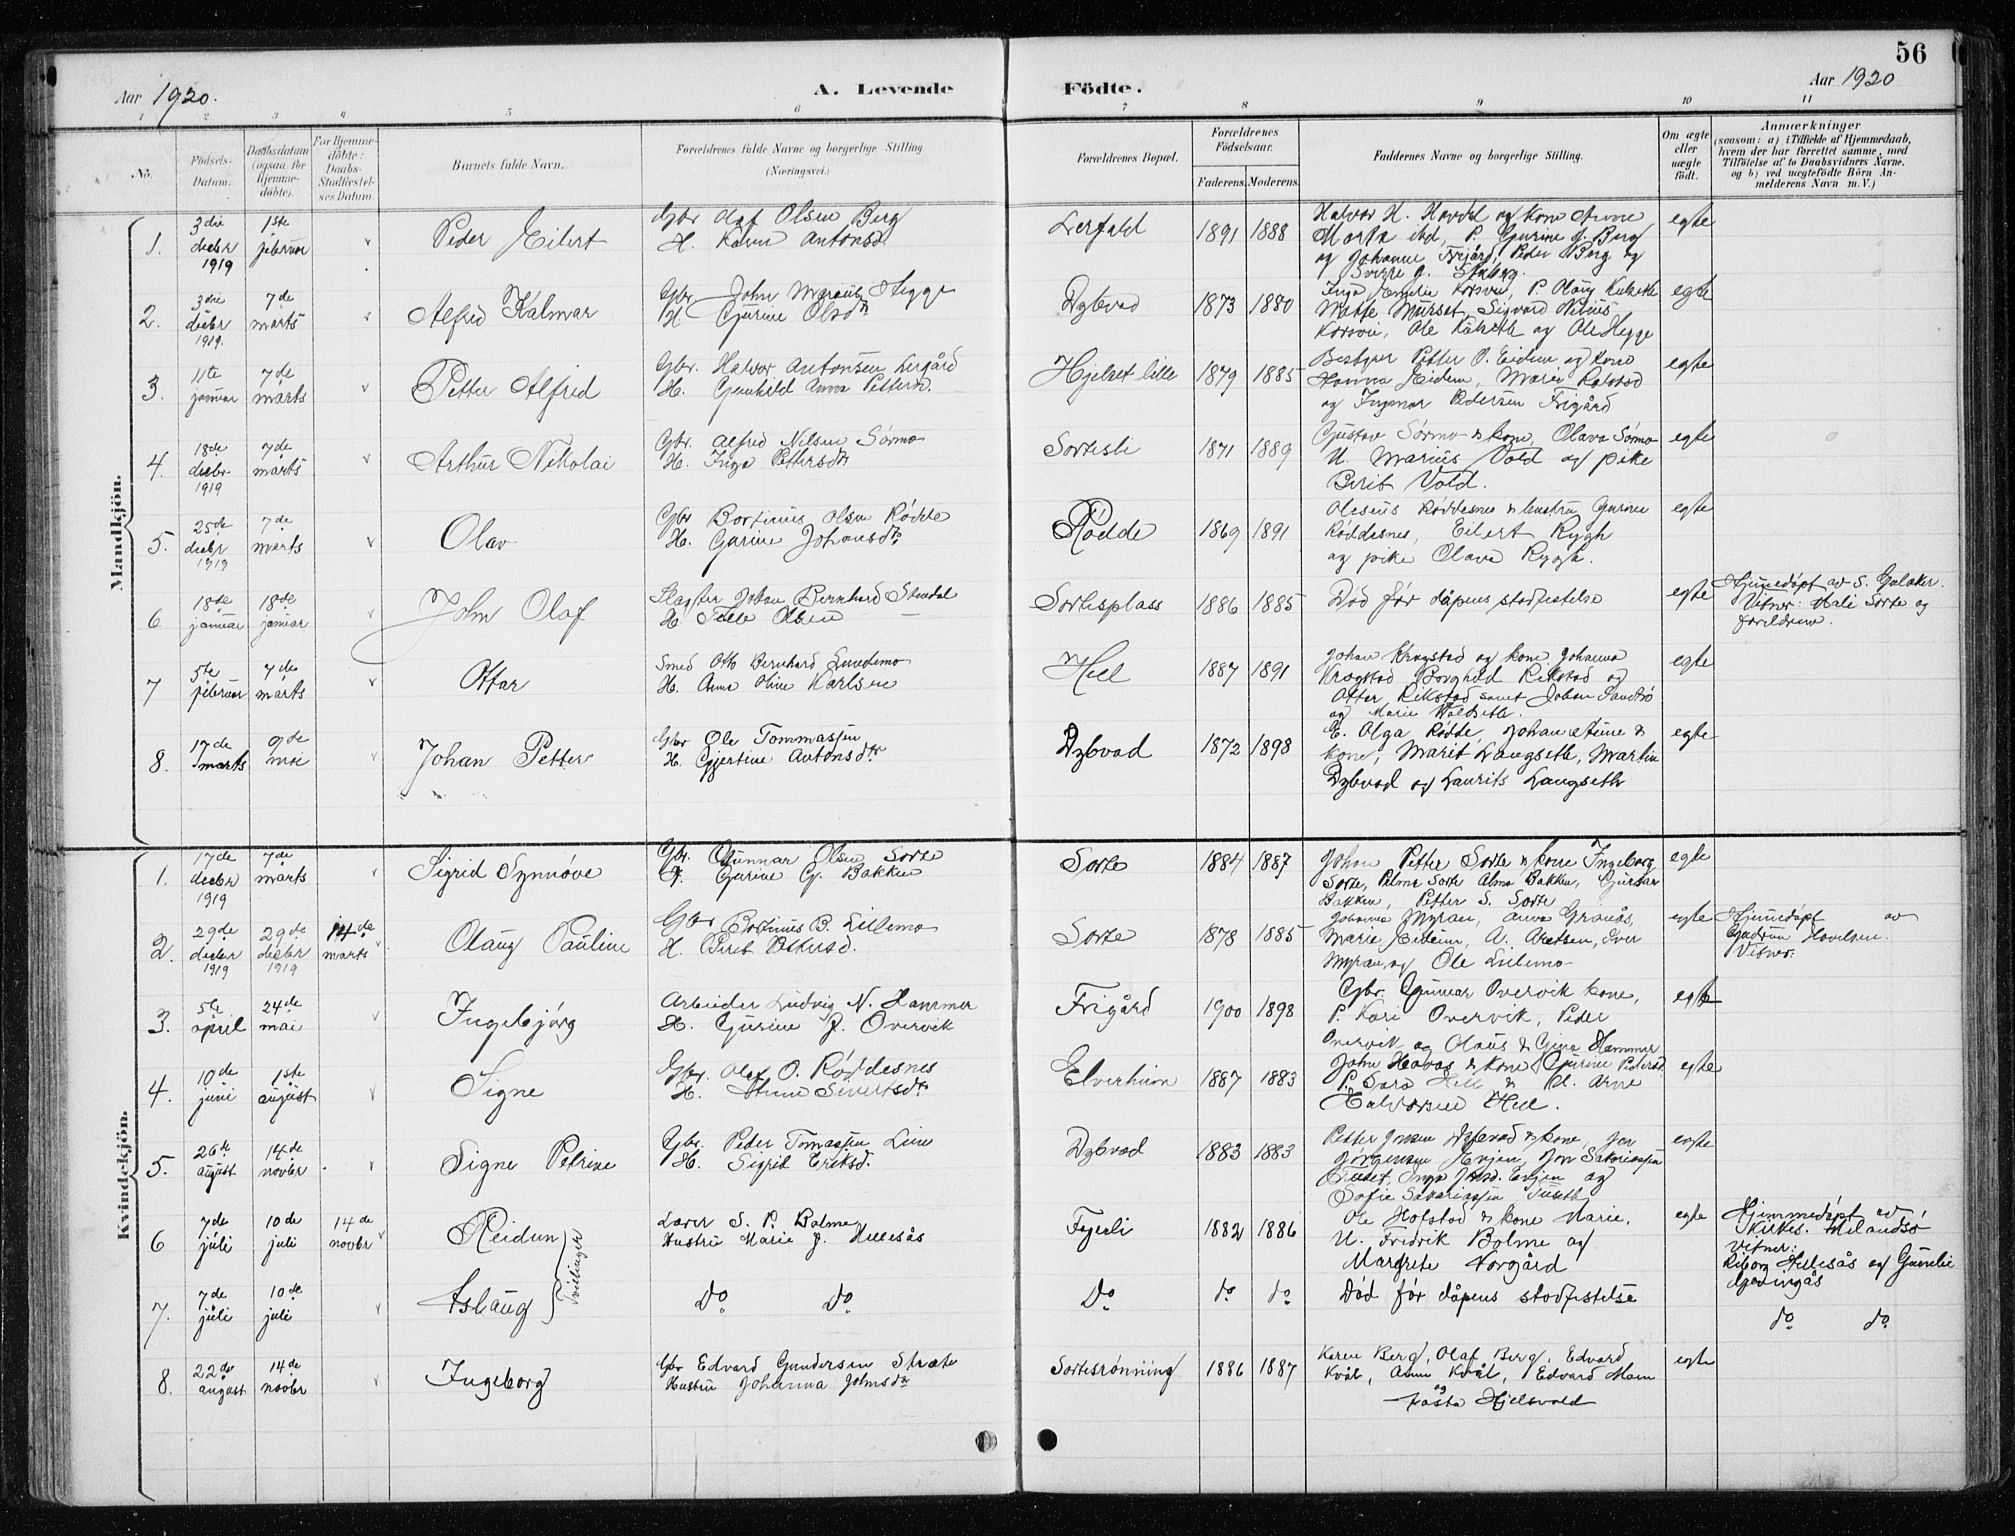 56
Aar 1920.
A. Levende
Födte.
Aar 1920
1 2 3 4 5 6 7 8 9 10 11
No.
Födsels-
Datum.
Daabsdatum
(ogsaa for
Hjemme-
döbte).
For Hjemme-
döbte:
Daabs-
Stadfæstel-
ses Datum.
Barnets fulde Navn.
Forældrenes fulde Navne og borgerlige Stilling
(Næringsvei.)
Forældrenes Bopæl.
Forældrenes
Födselsaar.
Faderens.
Moderens.
Faddernes Navne og borgerlige Stilling.
Om ægte
eller
uægte
födt.
Anmærkninger
(saasom: a) i Tilfælde af Hjemmedaab,
hvem der har forrettet samme, med
Tilföielse af to Daabsvidners Navne.
og b) ved uægtefödte Börn An-
melderens Navn m. V.)
Mandkjön.
1. 3die decbr 1919 1ste februar Peder Eilert
Gbr Olaf Olsen Berg
H. Karen Antonsd.
Lerfald 1891 1888
Halvor H. Havdal og kone Anne
Marta ibd, P. Gurine J. Berg
og Johanne Frigård, Peder Berg og
Sverre J. Staberg.
egte
2. 3die decbr 1919. 7de marts Alfred Kalmar
Gbr John Hegge
H. Gurine Olsdtr
Dybvad 1873 1880
Inga Emelie Korsvei, P. Olaug
Sigvard
Korsvei, Ole og Ole Hegge
egte
3. 11te januar 7de marts Petter Alfred
Gbr. Halvor Antonsen Lergård
H. Gunhild Anna Pettersd.
Hjelset lille 1879 1885
Petter O. Eidem og kone
Hanna Eidem, Marie
og Ingmar Pedersen Frigård
egte
4. 18de decbr 1919 7de marts Arthur Nikolai
Gbr. Alfred Nilsen Sørmo
H. Inga Pettersdtr
Sortesli 1871 1889
Gustav Sørmo & kone, Olava Sørmo
U. Marius Vold og pike
Berit Vold.
egte
5. 25de decbr 1919 7de marts Olav
Gbr Bortinus Olsen Rødde
H. Gurine Johansdtr
Rødde 1869 1891
Olesius Røddesnes & hustru Gurine
Røddesnes, Eilert Rygh
og pike Olava Rygh.
egte
6 18de januar 18de januar John Olaf
Slagter Johan Bernhard
H. Olsen
Sortesplass 1886 1885
Død før dåpens stadfestelse
egte
Hjemmedøpt av S. Galaker.
Vitner: Mali Sorte og
foreldrene.
7 5te februar 7de marts Ottar
Smed Otto Bernhard Lundemo
H. Anna Oline Karlsen
Hell 1887 1891
Johan Krogstad og kone Johanna
Krogstad Borghild Rikstad og
Ottar Rikstad samt Johan
og Marie
egte
8. 17de marts 9de mai Johan Petter
Gbr Ole Tommassen
H. Gjertine Antonsdtr
Dybvad 1872 1898
E. Olga Rødde, Johan &
kone, Marit Langseth, Martin
Dybvad og Laurits Langseth
egte
Kvindekjön.
1. 17de decbr 1919 7de marts Sigrid Synnöve
Gbr. Gunnar Olsen Sorte
H. Gurine G. Bakken
Sorte 1884 1887
Johan Petter Sorte & kone Ingeborg
Sorte, Palma Sorte Alma Bakken,
Bakken, Petter S. Sorte
egte
2. 29de decbr 1919 29de decbr 1919 14de marts Olaug Pauline
Gbr Bortinus B. Lillemo
H. Berit
Sorte 1878 1885
Johanna Myran, Anna Granås,
Marie Eidem, A. Aretsen, Iver
Myran, og Ole Lillemo
egte
Hjemmedøpt av
Gudrun Havelsen.
Vitner:
3. 5te april 24de mai Ingebjörg
Arbeider Ludvig N. Hammer
H. Gurine J. Overvik
Frigård 1900 1898
Gbr. Gunnar Overvik kone,
P. Kari Overvik, Peder
Overvik og Olaus & Gina Hammer
egte
4. 10de juni 1ste august Signe
Gbr. Olaf O. Røddesnes
H. Sivertsdtr
Elverhaun 1887 1883
John Havas & kone Gurine
P. Sara Hell & Arne
Halvorsen Hell.
egte
5. 26de august 14de novbr Signe Petrine
Gbr. Peder Tomassen Lien
H. Sigrid Eriksd.
Dybvad 1883 1883
Petter Jonsen Dybvad & kone, Jon
Jørgensen Evjen, Jon Sakariassen
Tuset, Inga Jonsd. Evjen og
Sofie Sakariassen Tuseth
egte
6 7de juli 10de juli 14de novbr Reidun
Tvilinger
Lærer S. P. Bolme
Hustru Marie J. Hellesås
Fagerli 1882 1886
Ole Hofstad & kone Marie,
U. Fredrik Bolme og
Margrete Norgård
egte
Hjemmedøpt av
Vitner:
Hellesås og
7. 7de juli 10de juli Aslaug
Do Do
Do do do
Død før dåpens stadfestelse
do do
8. 22de august 14de novbr Ingeborg
Gbr Edvard Gundersen Stræte
Hustru Johanna Johnsdtr
Sortesrønning 1886 1887
Karen Berg, Olaf Berg, Edvard
Kvål, Anna Kvål, Edvard Moen
og Hjelsvold
egte